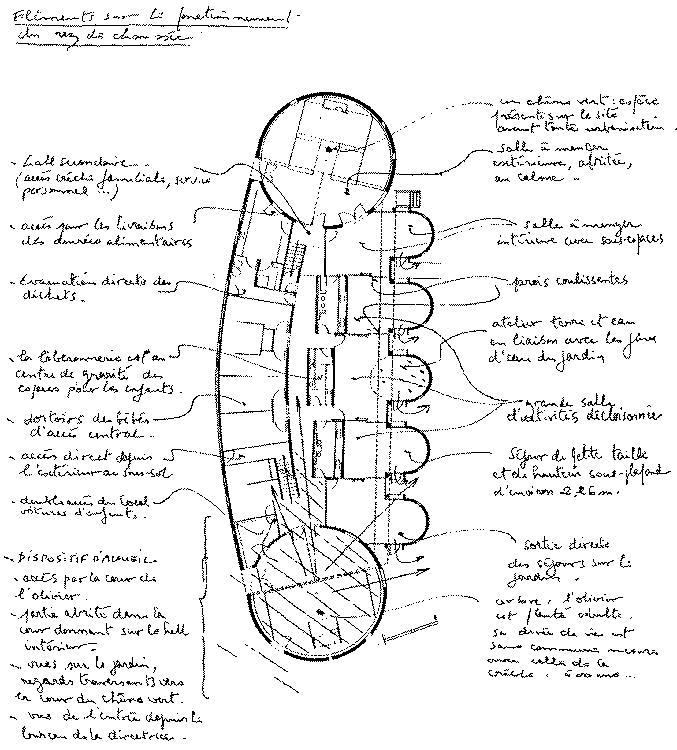 Eléments sur le fonctionnement
du rez de chaussée
- hall secondaire
(accès crèche familiale, service
personnel ...)
- accès pour les livraisons
des denrées alimentaires
- évacuation directe des
déchets.
- la biberonnerie est au
centre de gravité des
espaces pour les enfants.
- dortoirs des bébés
d'accès central.
- accès direct depuis
l'extérieur au sous-sol
- double accès du local
voitures d'enfants.
- DISPOSITIF D'ACCUEIL
- accès par la cour de
l'olivier.
- partie abritée dans la
cour donnant sur le hall
intérieur.
- vues sur le jardin,
regards traversants vers
la cour du chêne vert.
- vue de l'entrée depuis le
bureau de la directrice.
un chêne vert : espèce
présente sur le site
avant toute urbanisation.
salle à manger
extérieure, abritée,
au calme
salle à manger
intérieure avec sous-espaces
parois coulissantes
atelier terre et eau
en liaison avec les jeux
d'eau du jardin
grande salle
d'activités décloisonnée
séjour de petite taille
et de hauteur sous-plafond
d'environ 2,26 m.
sortie directe
des séjours sur le
jardin.
l'olivier
est planté adulte.
sa durée de vie est
sans commune mesure
avec celle de la
crèche.